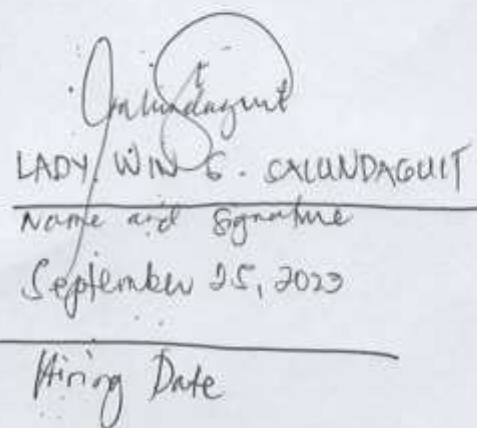 Salundaguit
LADY WIN S. SALUNDAGUIT
Name and Signature
September 25, 2023
Hiring Date